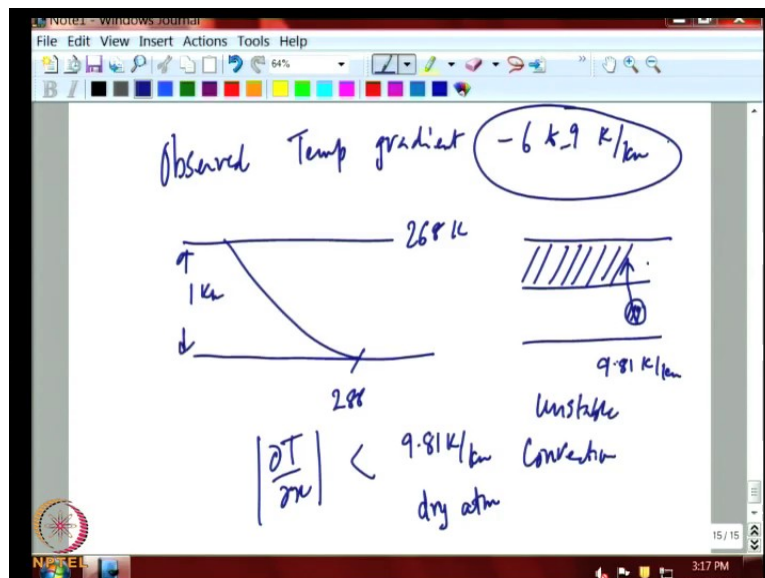 Note1 - Windows Journal
File Edit View Insert Actions Tools Help
64%
B I
Observed Temp gradient -6 to -9 K/km
268 K
1 Km
9.81 K/km
288
Unstable
|∂T/∂x| < 9.81 K/km Convection
dry atm
15 / 15
NPTEL
3:17 PM